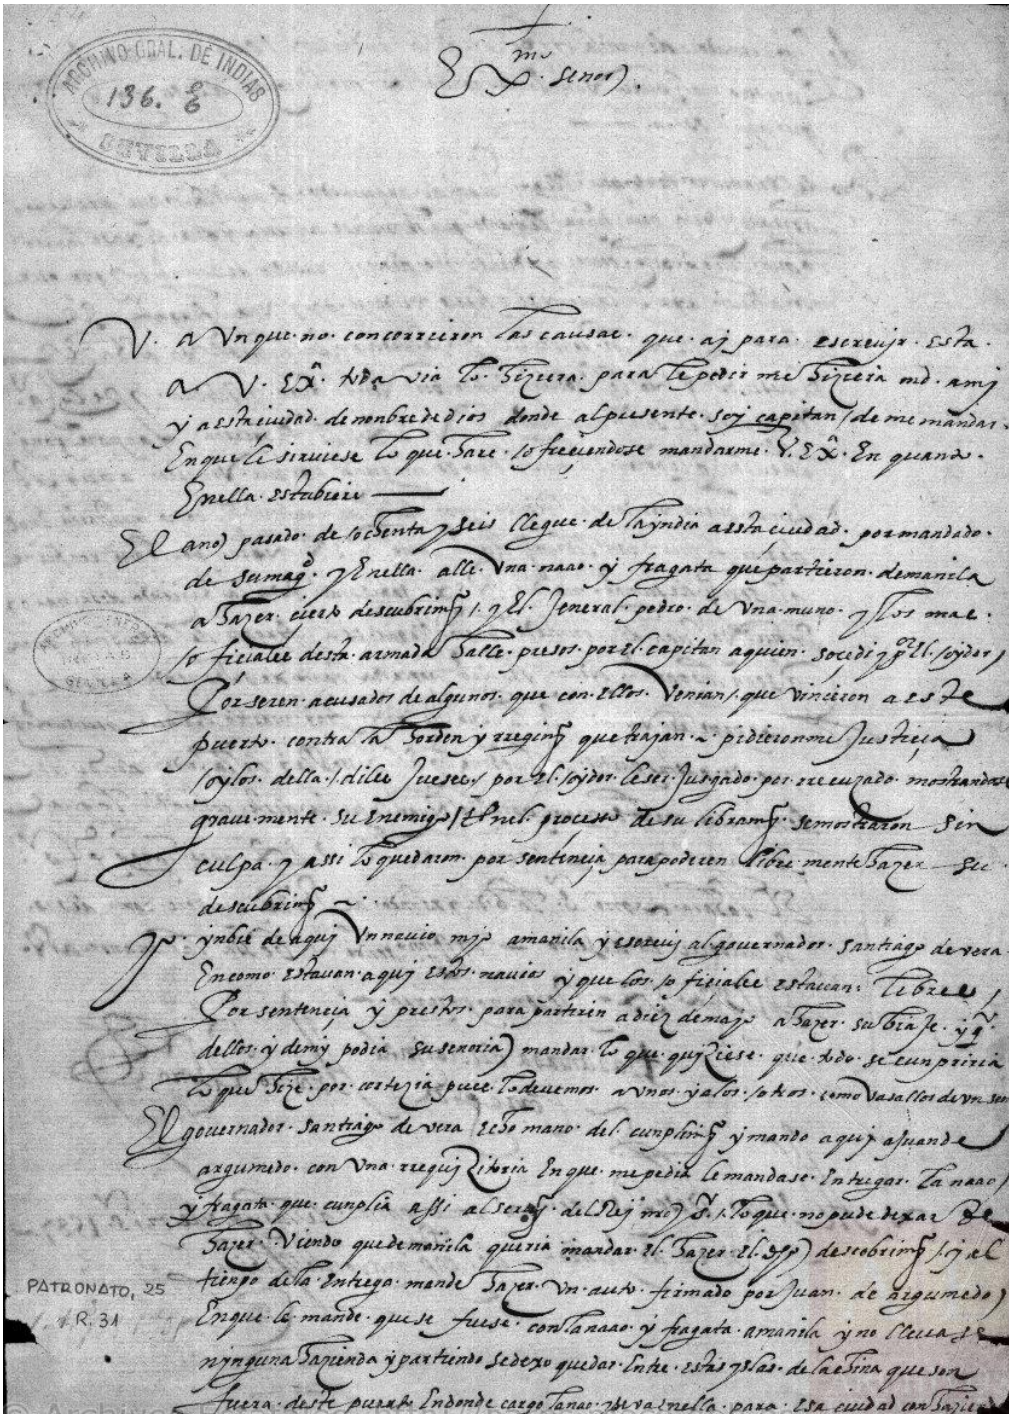 ARCHIVO GRAL. DE INDIAS
136. E 6
SEVILLA
Exmo. senor
V. aunque no concorreiron las causas que aj para escreujr esta
a V. Exa. todavia lo hiziera para le pedir me hiziera md. a mj
y a esta ciudad de nonbre de dios donde al presente soj capitan / de me mandar
En que le sirviese lo que hare ofreçiendose mandarme V. Exa. En quanto
Enella estubiere
El ano pasado de ochenta y seis llegue de la yndia a esta ciudad por mandado
de su magd. y Enella alle una nao y fragata que partieron de manila
a hazer çierto descubrimto / y El Jeneral pedro de unamuno y los mas
oficiales desta armada halle presos por El capitan a quien soçedi y por El oydor
Por seren acusados de algunos que con ellos venian / que vinieron a este
puerto contra la horden y rregimto que trajan pidieronme Justiçia
oylos della / diles Jueses por El oydor le ser Jusgado por rrecuzado mostrandose
gravemente su Enemigo / Enel proceso de su libramto se mostraron sin
culpa y assi lo quedaron por sentençia para poderen libremente hazer su
descubrimto
ynbié de aquj un navio mjo a manila y escrevj al governador santiago de vera
En como estavan aquj estos navios y que los oficiales estavan libres
Por sentençia y prestos para partiren a diez de majo a hazer su biaje y q
dellos y de mj podia su senoria mandar lo que quiziese que todo se cunpriria
lo que hize por cortezia pues lo devemos a unos y a los otros como vasallos de un senor
El governador santiago de vera echo mano del cunplimto y mando aquj a juan de
argumedo con una rrequizitoria En que me pedia le mandase Entregar la nao
y fragata que cunplia assi al serujo del Rej nro sr / lo que no pude dexar de
hazer viendo que de manila queria mandar El hazer El dho descobrimto / y al
tienpo de la Entrega mande hazer un auto firmado por Juan de argumedo
En que le mande que se fuese con la nao y fragata a manila y no llevase
ninguna hazienda y partiendo se dexo quedar Entre estas yslas de la china que son
fuera deste puerto Endonde cargo la nao y se va Enella para Esa ciudad con hazienda
PATRONATO, 25
R. 31